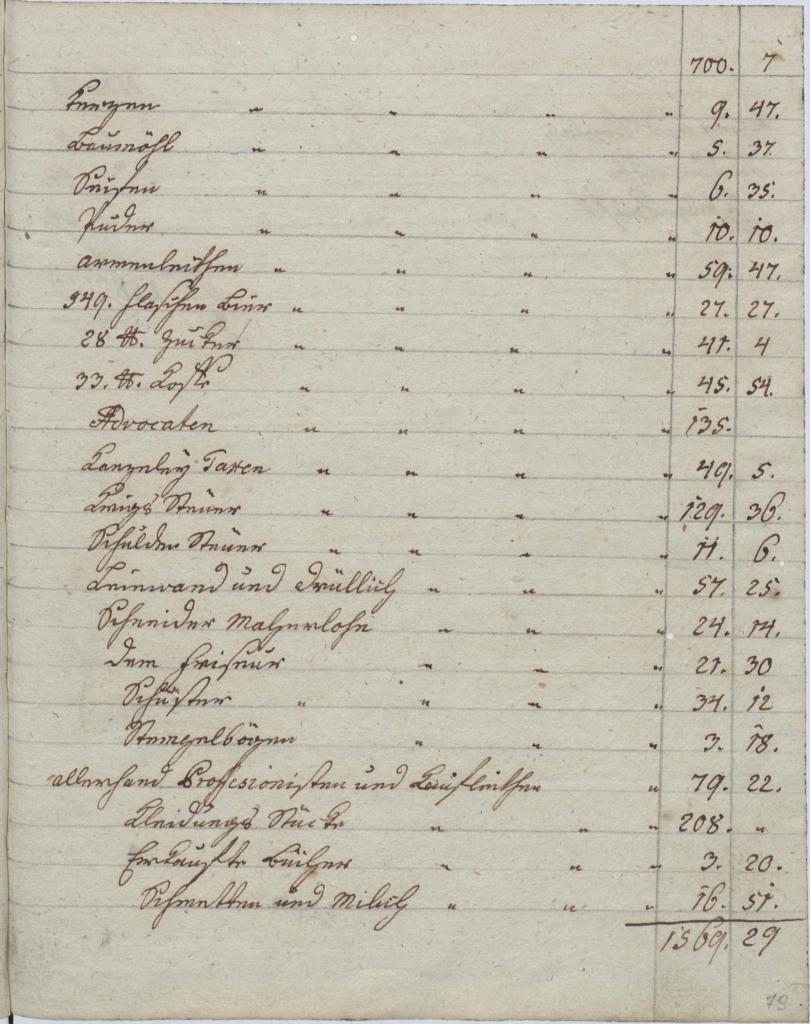 700. 7
Kerzen " " " " 9. 47.
Baumöhl " " " " 5. 37
Seifen " " " " 6. 35.
Puder " " " " 10. 10.
armenleithen " " " " 59. 47.
549. Flaschen Bier " " " " 27. 27.
28 ℔. Zucker " " " " 41. 4
33. ℔. Koffe " " " " 45. 54.
Advocaten " " " " 135.
Kanzeley Taxen " " " " 49. 5.
Krigs Steüer " " " " 129. 36.
Schulden Steüer " " " " 11. 6.
Leinwand und Drüllich " " " 57. 25.
Schneider Macherlohn " " " 24. 14.
dem Friseur " " " 21. 30
Schuster " " " " 34. 12
Stempelbögen " " " 3. 18.
allerhand Professionisten und Kaufleithen " 79. 22.
Kleidungs Stücke " " " 208. "
Erkaufte Bücher " " " 3. 20.
Schmetten und Milich " " " 16. 51.
1569. 29